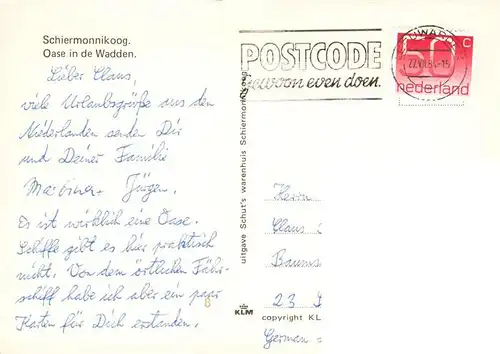 Schiermonnikoog.
Oase in de Wadden.
Lieber Claus,
viele Urlaubsgrüße aus den
Niederlanden senden Dir
und Deiner Familie
Jürgen.
Es ist wirklich eine Oase.
Schiffe gibt es hier praktisch
nicht. Von dem örtlichen Fähr-
schiff habe ich aber ein paar
Karten für Dich erstanden.
8
uitgave Schut's warenhuis Schiermonnikoog
KLM
POSTCODE
gewoon even doen.
50 c
nederland
Herrn
Claus
Baums
23
copyright KL
German